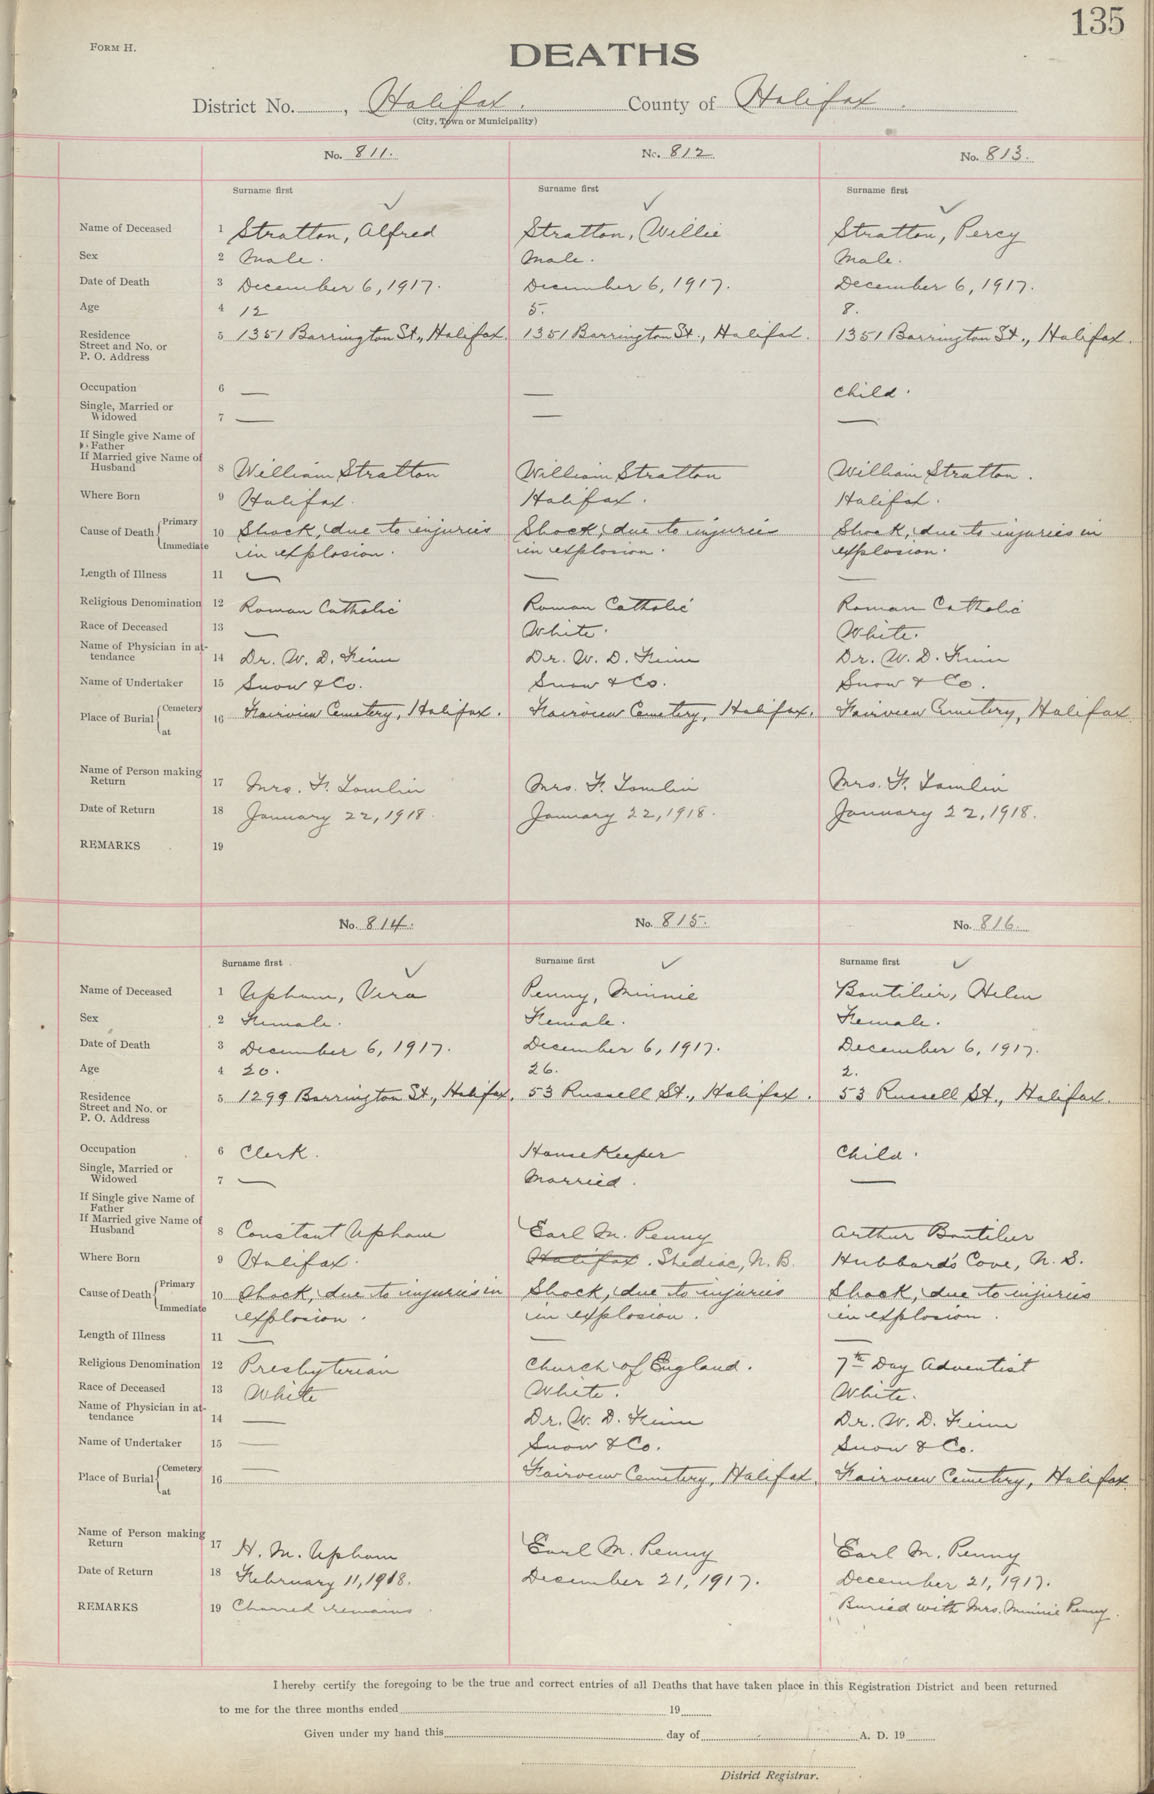 135
FORM H.
DEATHS
District No. , Halifax. County of Halifax.
(City, Town or Municipality)
No. 811. No. 812 No. 813.
Surname first Surname first Surname first
Name of Deceased 1 Stratton, Alfred Stratton, Willie Stratton, Percy
Sex 2 Male. Male. Male.
Date of Death 3 December 6, 1917. December 6, 1917. December 6, 1917.
Age 4 12 5. 8.
Residence Street and No. or P. O. Address 5 1351 Barrington St., Halifax. 1351 Barrington St., Halifax. 1351 Barrington St., Halifax.
Occupation 6 — — Child.
Single, Married or Widowed 7 — — —
If Single give Name of Father
If Married give Name of Husband 8 William Stratton William Stratton William Stratton.
Where Born 9 Halifax. Halifax. Halifax.
Cause of Death { Primary 10 Shock, due to injuries Shock, due to injuries Shock, due to injuries in
Immediate in explosion. in explosion. explosion.
Length of Illness 11 — — —
Religious Denomination 12 Roman Catholic Roman Catholic Roman Catholic
Race of Deceased 13 — White. White.
Name of Physician in attendance 14 Dr. W. D. Finn Dr. W. D. Finn Dr. W. D. Finn
Name of Undertaker 15 Snow & Co. Snow & Co. Snow & Co.
Place of Burial { Cemetery at 16 Fairview Cemetery, Halifax. Fairview Cemetery, Halifax. Fairview Cemetery, Halifax.
Name of Person making Return 17 Mrs. F. Tomlin Mrs. F. Tomlin Mrs. F. Tomlin
Date of Return 18 January 22, 1918. January 22, 1918. January 22, 1918.
REMARKS 19
No. 814. No. 815. No. 816.
Surname first Surname first Surname first
Name of Deceased 1 Upham, Vera Penny, Minnie Boutilier, Helen
Sex 2 Female. Female. Female.
Date of Death 3 December 6, 1917. December 6, 1917. December 6, 1917.
Age 4 20. 26. 2.
Residence Street and No. or P. O. Address 5 1299 Barrington St., Halifax. 53 Russell St., Halifax. 53 Russell St., Halifax.
Occupation 6 Clerk. HouseKeeper Child.
Single, Married or Widowed 7 — Married. —
If Single give Name of Father
If Married give Name of Husband 8 Constant Upham Earl M. Penny Arthur Boutilier
Where Born 9 Halifax. Halifax. Shediac, N. B. Hubbard's Cove, N. S.
Cause of Death { Primary 10 Shock, due to injuries in Shock, due to injuries Shock, due to injuries
Immediate explosion. in explosion. in explosion.
Length of Illness 11 — — —
Religious Denomination 12 Presbyterian Church of England. 7th Day Adventist
Race of Deceased 13 White White. White.
Name of Physician in attendance 14 — Dr. W. D. Finn Dr. W. D. Finn
Name of Undertaker 15 — Snow & Co. Snow & Co.
Place of Burial { Cemetery at 16 — Fairview Cemetery, Halifax. Fairview Cemetery, Halifax.
Name of Person making Return 17 H. M. Upham Earl M. Penny Earl M. Penny
Date of Return 18 February 11, 1918. December 21, 1917. December 21, 1917.
REMARKS 19 Charred remains. Buried with Mrs. Minnie Penny.
I hereby certify the foregoing to be the true and correct entries of all Deaths that have taken place in this Registration District and been returned
to me for the three months ended 19
Given under my hand this day of A. D. 19
District Registrar.